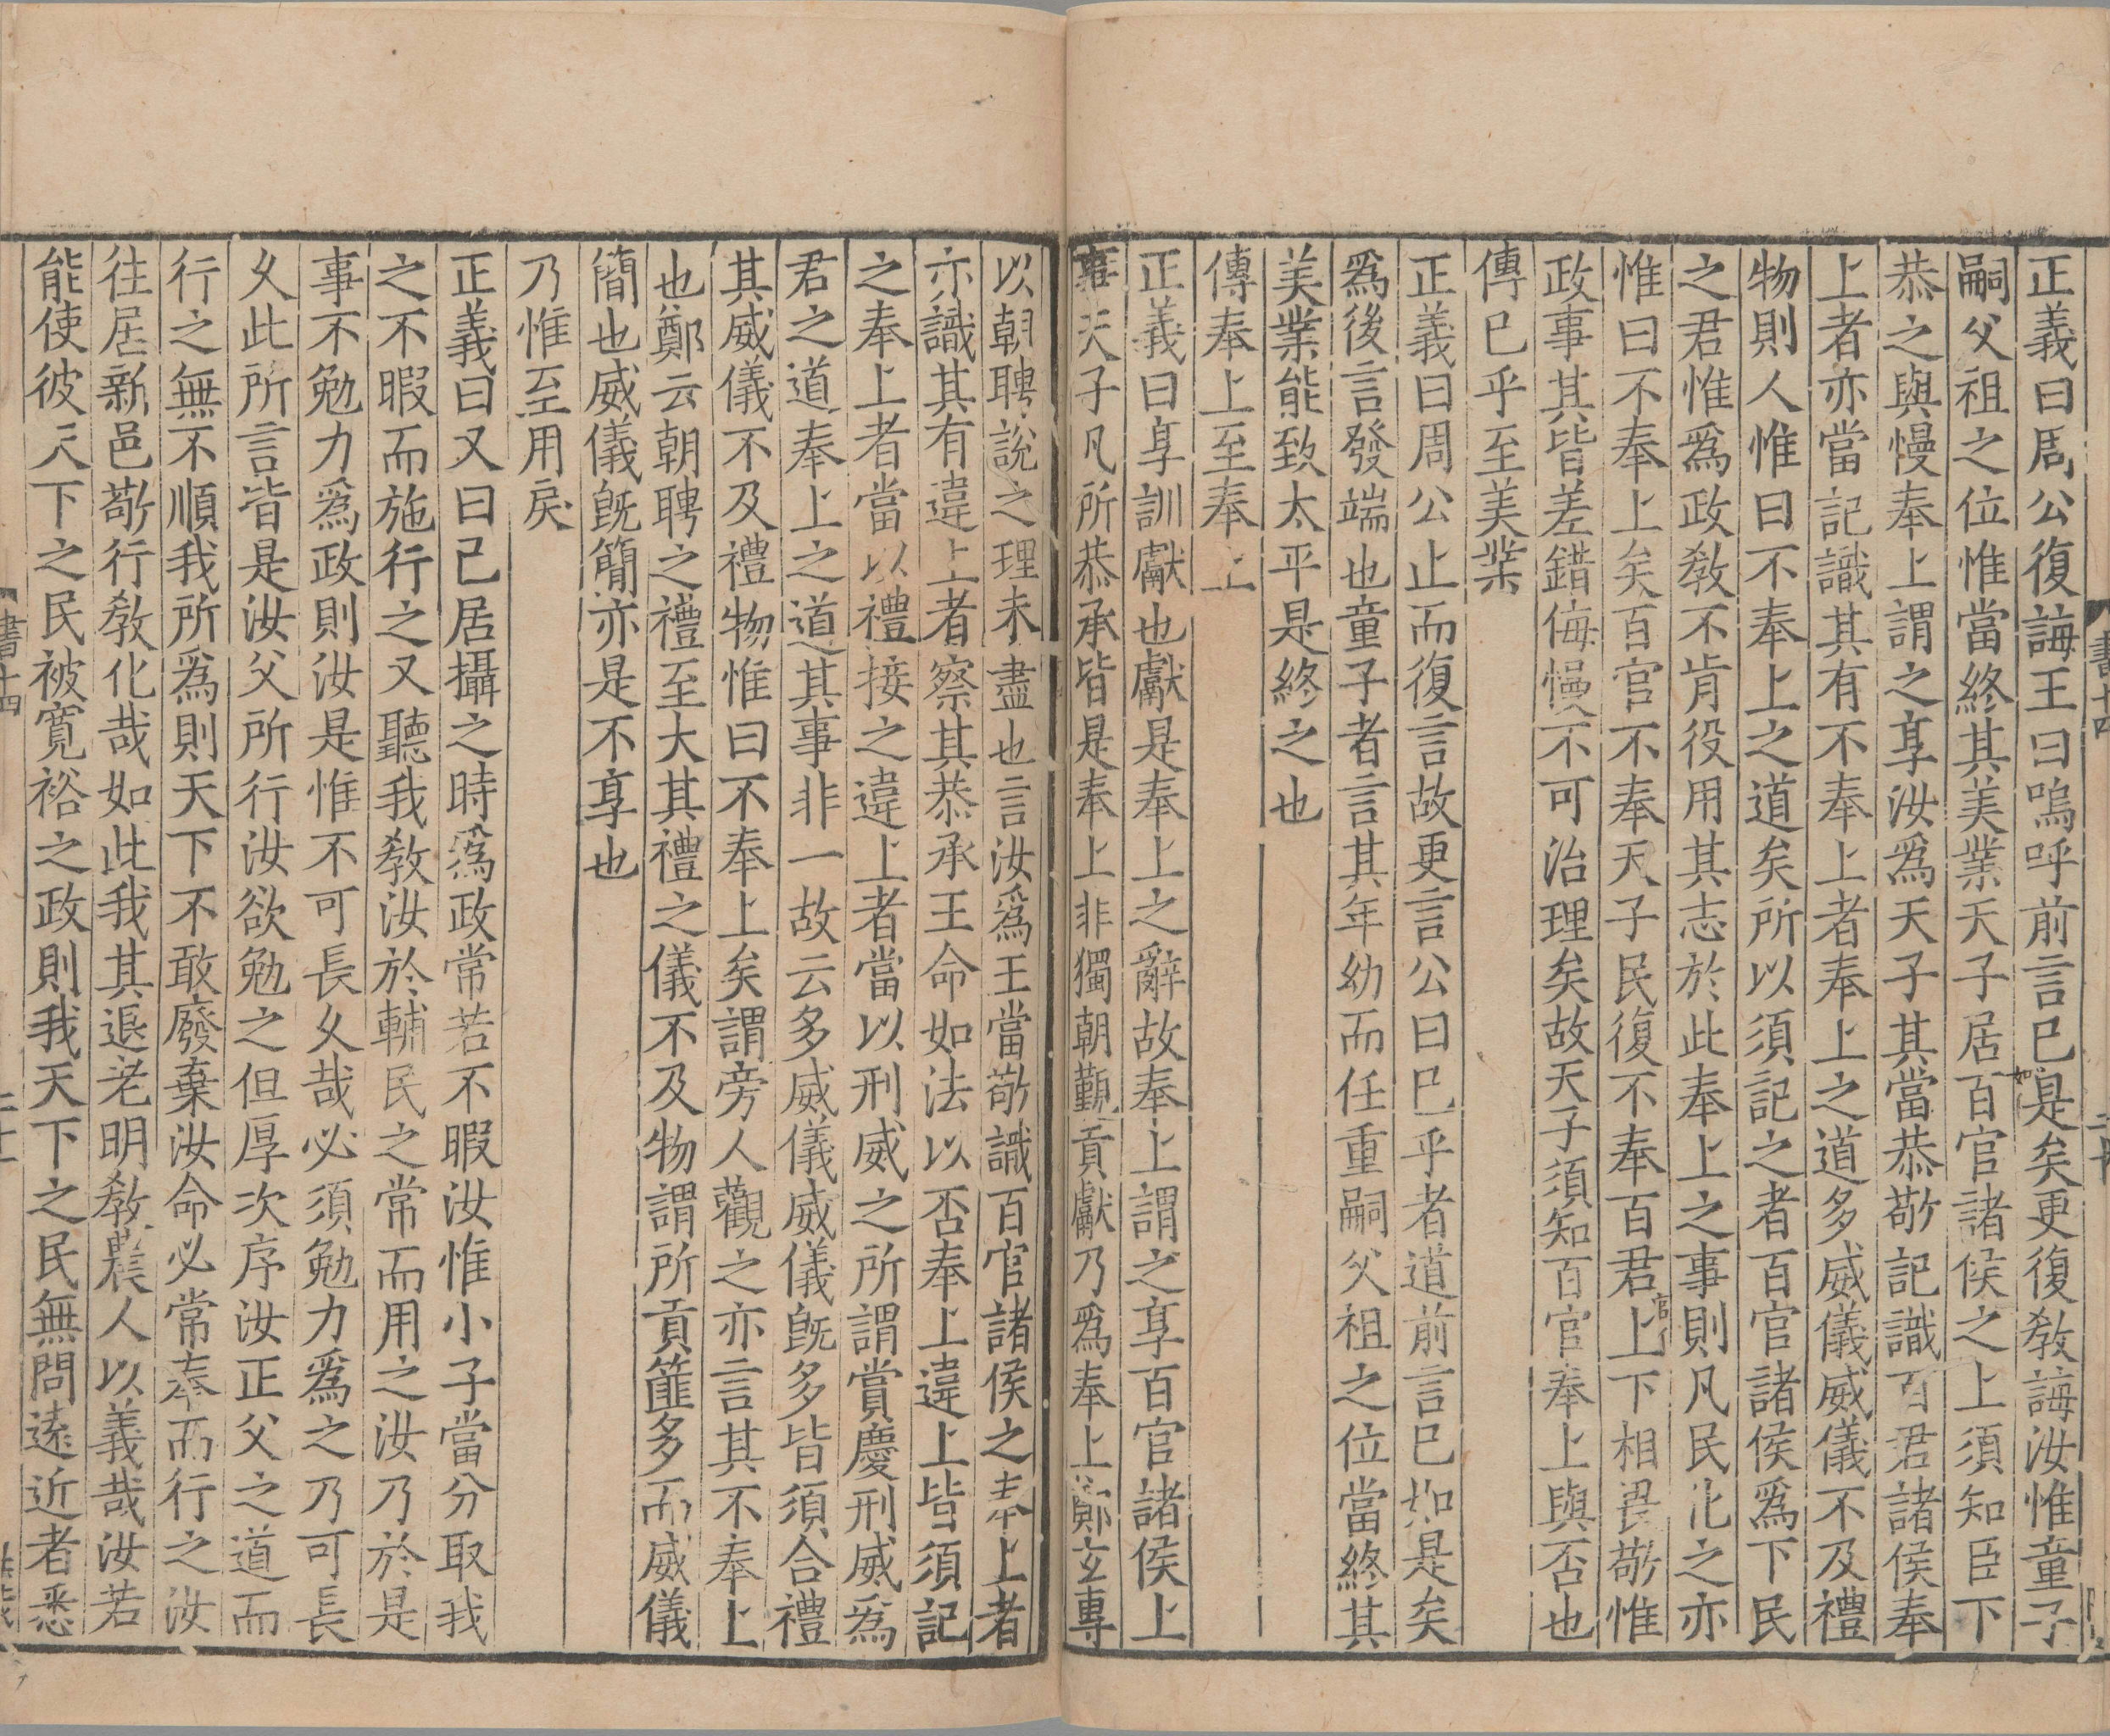 正義曰周公復誨王曰嗚呼前言已如是矣更復敎誨汝惟童子
嗣父祖之位惟當終其美業天子居百官諸侯之上須知臣下
恭之與慢奉上謂之享汝爲天子其當恭敬記識百君諸侯奉
上者亦當記識其有不奉上者奉上之道多威儀威儀不及禮
物則人惟曰不奉上之道矣所以須記之者百官諸侯爲下民
之君惟爲政敎不肯役用其志於此奉上之事則凡民化之亦
惟曰不奉上矣百官不奉天子民復不奉百君官上下相畏敬惟
政事其皆差錯侮慢不可治理矣故天子須知百官奉上與否也
傳已乎至美業
正義曰周公止而復言故更言公曰已乎者道前言已如是矣
爲後言發端也童子者言其年幼而任重嗣父祖之位當終其
美業能致太平是終之也
傳奉上至奉上
正義曰享訓獻也獻是奉上之辭故奉上謂之享百官諸侯上
事天子凡所恭承皆是奉上非獨朝覲貢獻乃爲奉上鄭玄專
以朝聘說之理未盡也言汝爲王當敬識百官諸侯之奉上者
亦識其有違上者察其恭承王命如法以否奉上違上皆須記
之奉上者當以禮接之違上者當以刑威之所謂賞慶刑威爲
君之道奉上之道其事非一故云多威儀威儀旣多皆須合禮
其威儀不及禮物惟曰不奉上矣謂旁人觀之亦言其不奉上
也鄭云朝聘之禮至大其禮之儀不及物謂所貢篚多而威儀
簡也威儀旣簡亦是不享也
乃惟至用戾
正義曰又曰己居攝之時爲政常若不暇汝惟小子當分取我
之不暇而施行之又聽我敎汝於輔民之常而用之汝乃於是
事不勉力爲政則汝是惟不可長久哉必須勉力爲之乃可長
久此所言皆是汝父所行汝欲勉之但厚次序汝正父之道而
行之無不順我所爲則天下不敢廢棄汝命必常奉而行之汝
往居新邑敬行敎化哉如此我其退老明敎農人以義哉汝若
能使彼天下之民被寬裕之政則我天下之民無問遠近者悉
書十四